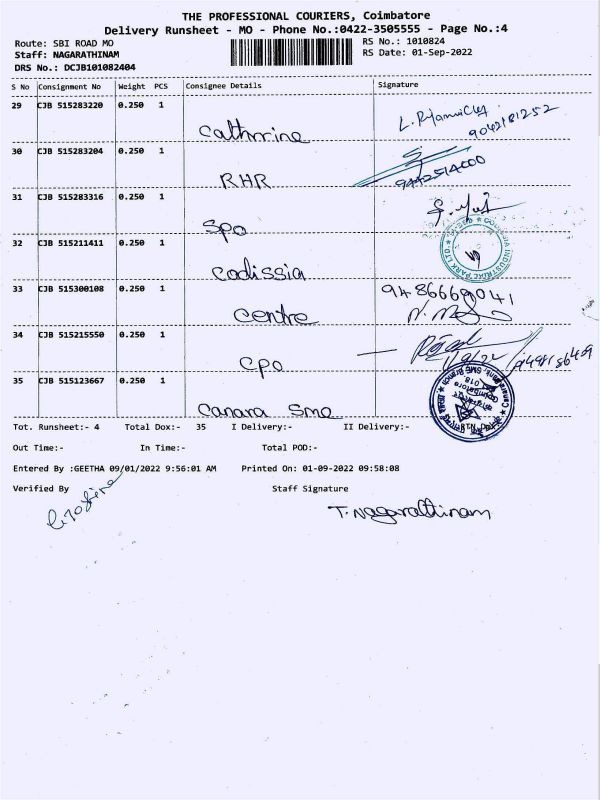 THE PROFESSIONAL COURIERS, Coimbatore
Delivery Runsheet - MO - Phone No.:0422-3505555 - Page No.:4
Route: SBI ROAD MO
RS No.: 1010824
Staff: NAGARATHINAM
RS Date: 01-Sep-2022
DRS No.: DCJB101082404
S No Consignment No Weight PCS Consignee Details Signature
29 CJB 515283220 0.250 1
Cathrrine
9042181252
30 CJB 515283204 0.250 1
RHR
9442514000
31 CJB 515283316 0.250 1
Spo
32 CJB 515211411 0.250 1
Codissia
33 CJB 515300108 0.250 1 9486669041
Centre
34 CJB 515215550 0.250 1
CPO
1/9/22
35 CJB 515123667 0.250 1
Canara Sme
Tot. Runsheet:- 4 Total Dox:- 35 I Delivery:- II Delivery:-
Out Time:- In Time:- Total POD:-
Entered By :GEETHA 09/01/2022 9:56:01 AM Printed On: 01-09-2022 09:58:08
Verified By Staff Signature
T. Nagarathinam